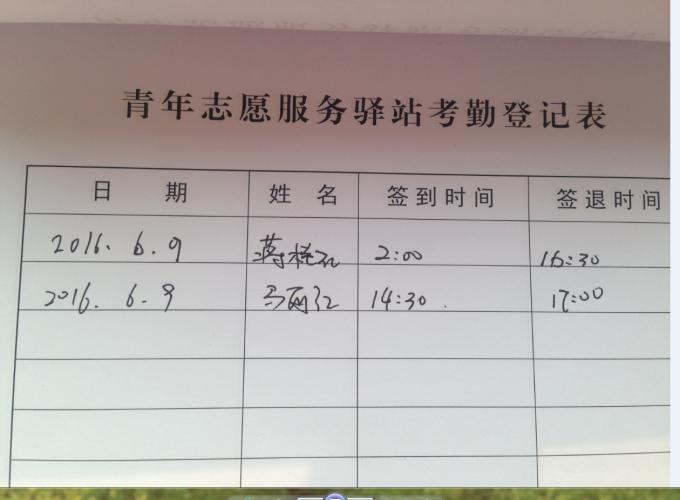 青年志愿服务驿站考勤登记表
日 期 姓 名 签到时间 签退时间
2016.6.9 蒋桂红 2:00 16:30
2016.6.9 马丽红 14:30 17:00